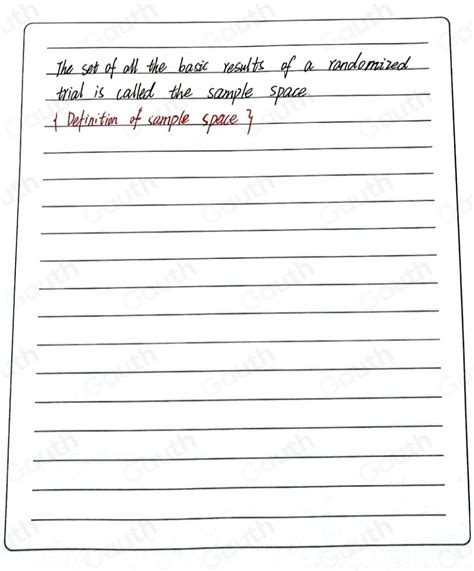 The set of all the basic results of a randomized
trial is called the sample space.
{ Definition of sample space }